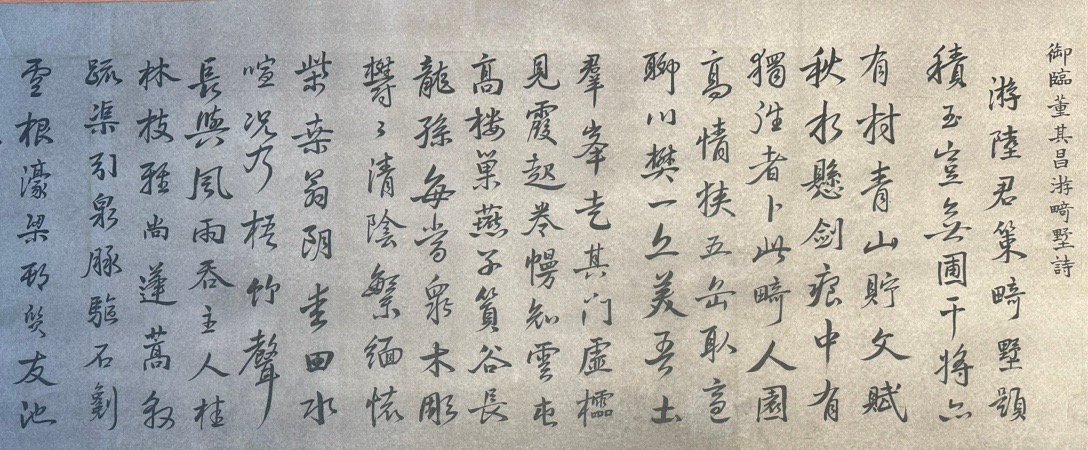 御臨董其昌游畸墅詩
游陸君策畸墅題
積玉豈無圃干將亦
有村青山貯文賦
秋水懸劍痕中有
獨往者卜此畸人園
高情狹五岳取適
聊川樊一丘美吾土
羣峯走其門虛櫺
見霞起卷幔知雲屯
高楼巢燕子篔谷長
龍孫每當衆木彫
欝〻清陰繁緬懷
柴桑翁田水
喧况乃梧竹聲
長與風雨吞主人桂
林枝雅尚蓬蒿敦
疏渠引泉脉驅石劚
雲根濠梁質友池